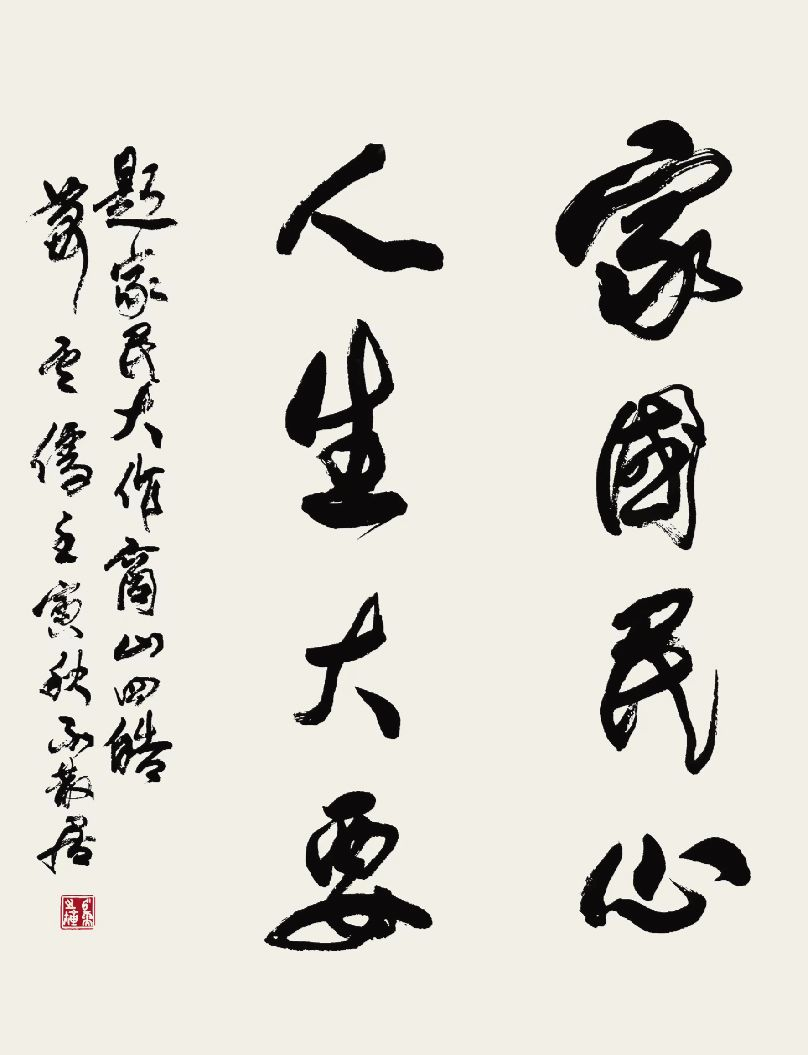 家國民心
人生大要
題家民大作商山四皓
云儒壬寅秋不散居